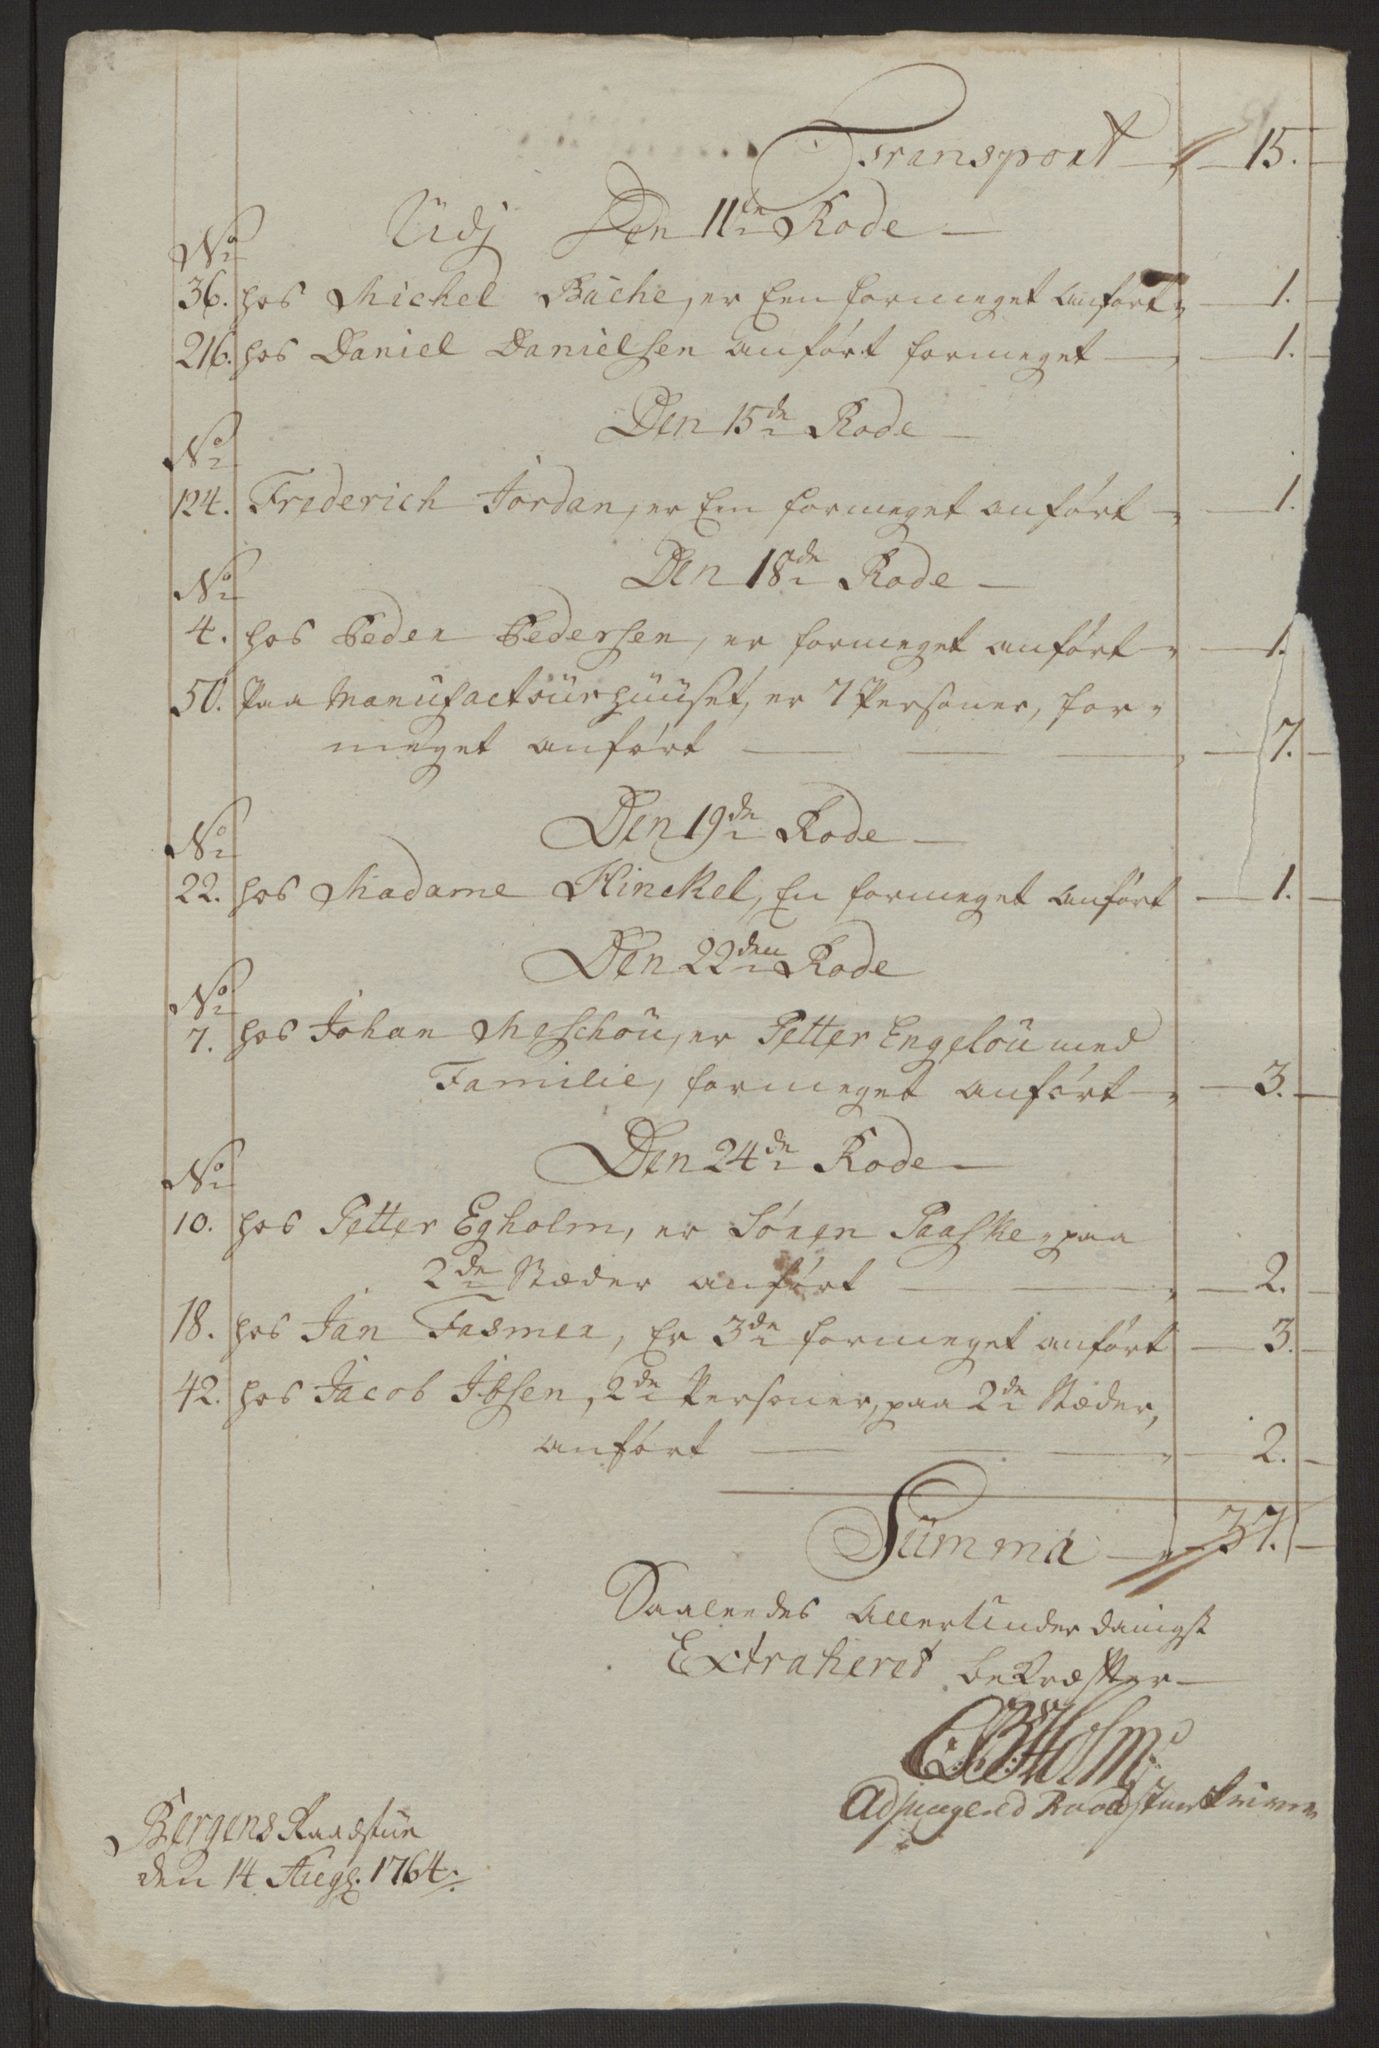 Transport 15.
Udj Den 11te Rode
No
36. hos Michel Bache, er Een formeget anført 1.
216. hos Daniel Danielsen anført formeget 1.
Den 15de Rode
No
124. Frederich Jordan, er Een formeget anført 1.
Den 18de Rode
No
4. hos Peder Pedersen, er formeget anført 1.
50. Paa Manufacturhuuset, er 7 Personer, for-
meget anført 7.
Den 19de Rode
No
22. hos Madame Hinckel, En formeget anført 1.
Den 22den Rode
No
7. hos Johan Meschou, er Petter Engelou med
Familie, formeget anført 3.
Den 24de Rode
No
10. hos Petter Egholm, er Søren Paaske, paa
2de Stæder anført 2.
18. hos Jan Fasmer, Er 3de formeget anført 3.
42. hos Jacob Ibsen, 2de Personer, paa 2de Stæder,
anført 2.
Summa 37.
Saaledes allerunderdanigst
Extraheret bekræfter
Holm
Bergens Raadstue
den 14 Aug. 1764.